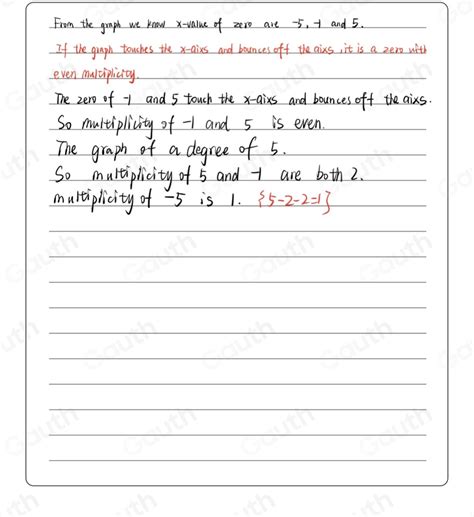 From the graph we know x-value of zero are -5, -1 and 5.
If the graph touches the x-aixs and bounces off the aixs, it is a zero with
even multiplicity.
The zero of -1 and 5 touch the x-aixs and bounces off the aixs.
So multiplicity of -1 and 5 is even.
The graph of a degree of 5.
So multiplicity of 5 and -1 are both 2.
multiplicity of -5 is 1. {5-2-2=1}